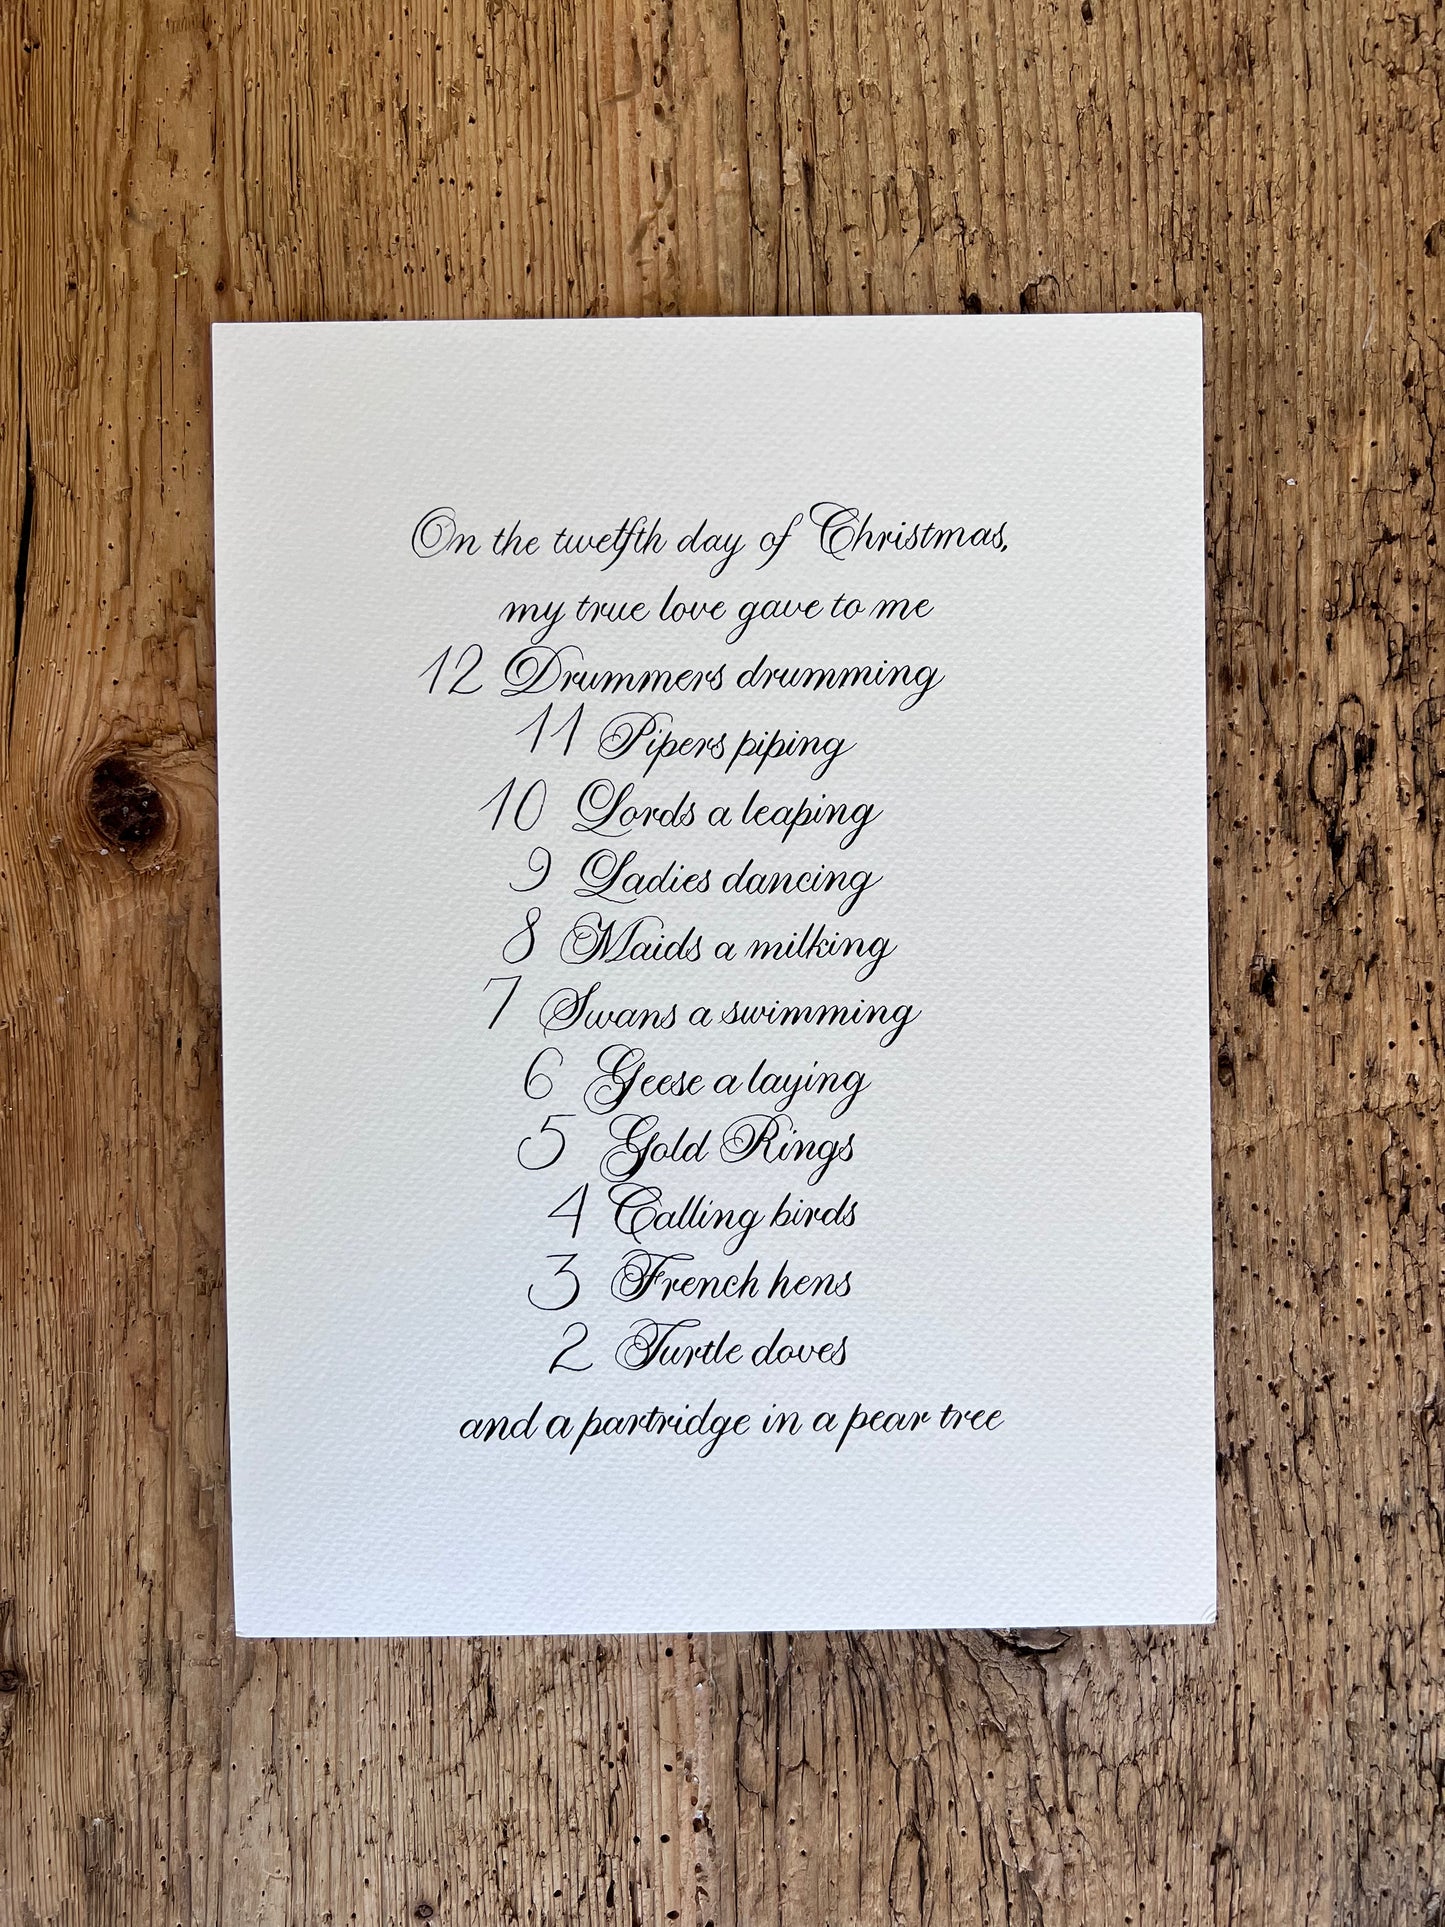 On the twelfth day of Christmas,
my true love gave to me
12 Drummers drumming
11 Pipers piping
10 Lords a leaping
9 Ladies dancing
8 Maids a milking
7 Swans a swimming
6 Geese a laying
5 Gold Rings
4 Calling birds
3 French hens
2 Turtle doves
and a partridge in a pear tree